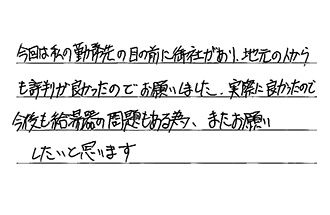 今回は私の勤務先の目の前に御社があり、地元の人から
も評判が良かったのでお願いしました。実際に良かったので
今後も給湯器の問題もある為、またお願い
したいと思います